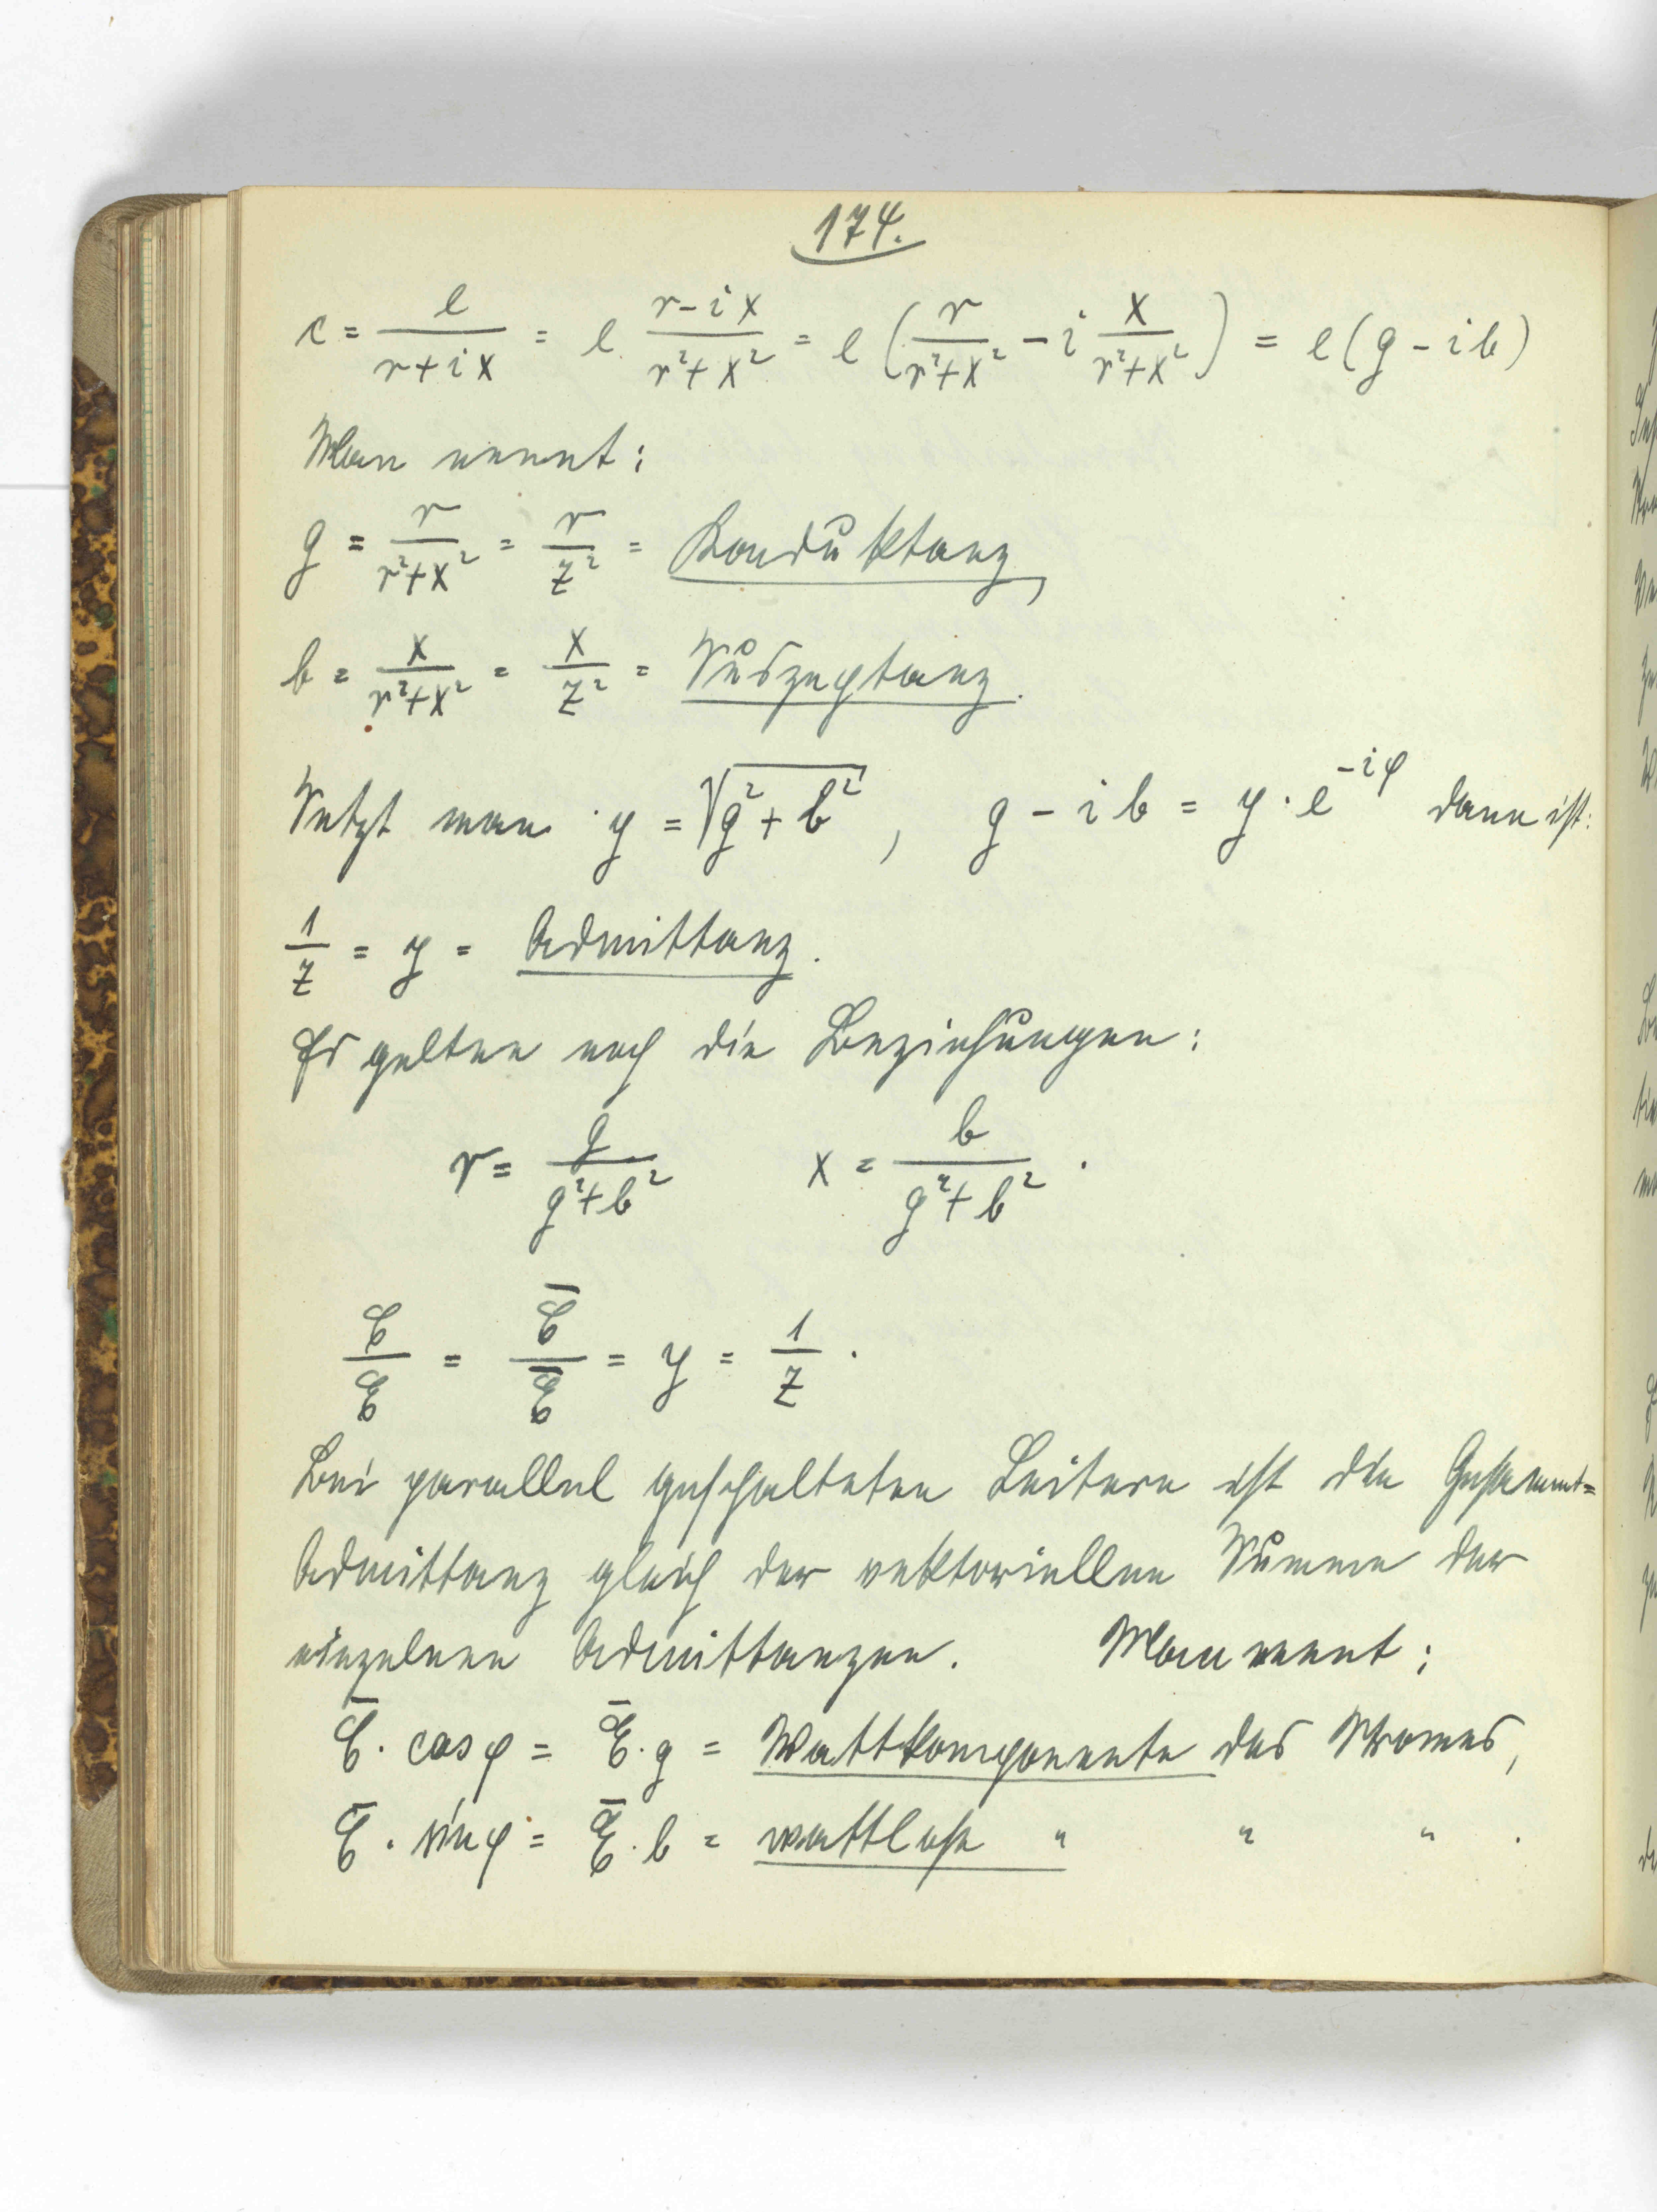 174.
c = e/(r+ix) = e. (r-ix)/(r²+x²) = e (r/(r²+x²) - i x/(r²+x²)) = e(g-ib)
Man nennt:
g = r/(r²+x²) = r/z² = Konduktanz,
b = x/(r²+x²) = x/z² = Suszeptanz.
Setzt man y = √(g²+b²), g-ib = y·e^(-iφ) dann ist:
1/z = y = Admittanz.
Es gelten noch die Beziehungen:
r = g/(g²+b²) x = b/(g²+b²).
ℭ/𝔈 = ℭ̄/𝔈̄ = y = 1/z.
Bei parallel geschalteten Leitern ist die Gesammt=
Admittanz gleich der vektoriellen Summe der
einzelnen Admittanzen. Man nennt:
ℭ̄. cos φ = 𝔈̄.g = Wattkomponente des Stromes,
ℭ̄. sin φ = 𝔈̄.b = wattlose " " ".